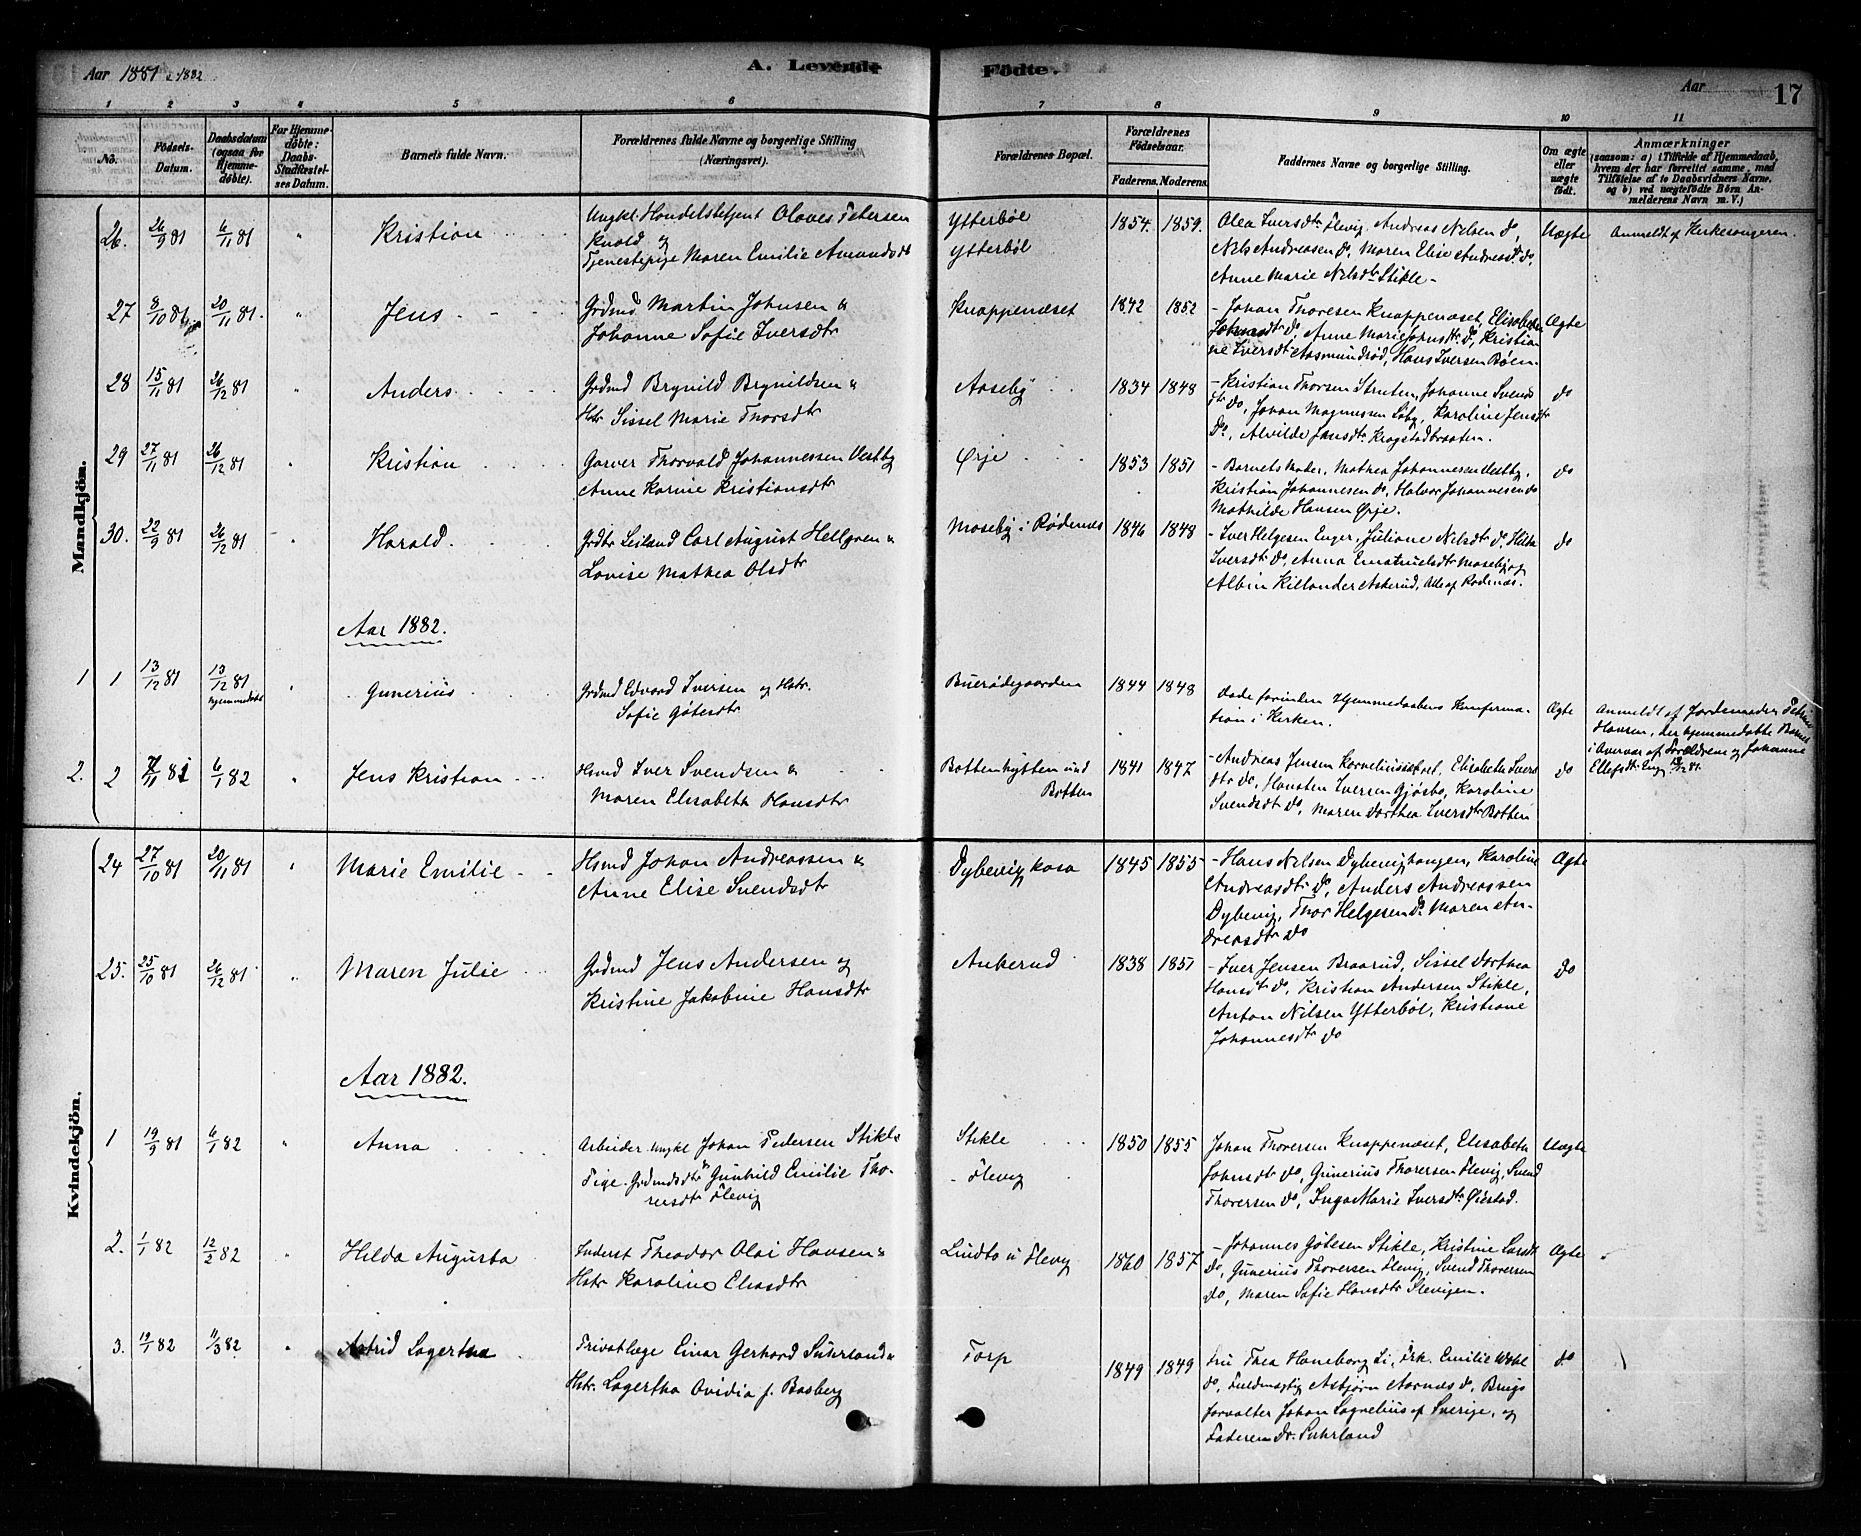 Aar 1881 & 1882
A. Levende Födte.
Aar 17
1 2 3 4 5 6 7 8 9 10 11
No.
Födsels-Datum.
Daabsdatum (ogsaa for Hjemme-døbte).
For Hjemme-døbte: Daabs-Stadfæstel-ses Datum.
Barnets fulde Navn.
Forældrenes fulde Navne og borgerlige Stilling
(Næringsvei).
Forældrenes Bopæl.
Forældrenes Fødselsaar.
Faderens. Moderens.
Faddernes Navne og borgerlige Stilling.
Om ægte eller uægte født.
Anmærkninger
(saasom: a) i Tilfælde af Hjemmedaab, hvem der har forrettet samme, med Tilføielse af to Daabsvidners Navne, og b) ved uægtefødte Børn An-melderens Navn m. V.)
Mandkjön.
26. 26/9 81 6/11 81 " Kristian
Ungkl. Handelsbetjent Olaves Petersen
Kvold og
Tjenestepige Maren Emilie Amundsdt
Ytterbøl
Ytterbøl
1854. 1859.
Olea Iversdtr Flevig, Andreas Nelsen do,
Nels Andreasen do, Maren Elise Andreasdtr do,
Anne Marie Nelsdtr Stikle -
Uægte
Anmeldt af Kirkesangeren.
27 8/10 81 20/11 81. " Jens
Grdmd Martin Johnsen &
Johanne Sofie Iversdtr
Knappenæset 1842 1852
- Johan Thoresen Knappenæset, Elisabeth
Johnsdtr do, Anne Marie Johnsdtr do, Kristia
ne Iversdtr Aasmundrød, Hans Iversen Bøen.
Ægte
28 15/11 81 26/12 81 " Anders
Grdmd Brynild Brynildsen &
Hstr Sissel Marie Thorsdtr
Aaseby 1834 1848
- Kristian Thorsen Struten, Johanne Svends
dtr do, Johan Magnussen Søby, Karoline Jensdtr
do, Alvilde Jansdtr Krogstadbraaten.
do
29 27/11 81 26/12 81 " Kristian
Garver Thorvald Johannessen Vestby
Anne Karine Kristiansdtr
Ørje 1853 1851
- Barnets Moder, Mathea Johannesen Vestby,
Kristian Johannesen do, Halvor Johannesen do
Mathilde Hansen Ørje.
do
30. 22/9 81 26/12 81 Harald.
Carl August Hellgren &
Lovise Mathea Olsdtr
Moseby i Rødenes 1846 1848
- Iver Helgesen Enger, Juliane Nelsdtr do, Hilda
Iversdtr do, Anna Moseby og
Albin Killander Askerud, Alle af Rødenæs.
do
Aar 1882.
1 1 13/12 81 13/12 81 hjemmedøbt " Gunerius
Grdmd Edvard Iversen og Hstr.
Sofie Gøtesdtr
Buerødegaarden 1844 1848
Døde forinden Hjemmedaabens Konferma-
tion i Kirken.
Ægte
Anmeldt af Jordemoder Petrine
Hansen, der hjemmedøbte Barnet
i Overvær af Forældrene og Johanne
Ellefsdtr Eng 13/12 81.
2. 2 7/11 81 6/1 82 " Jens Kristian
Hsmd Iver Svendsen &
Maren Elisabeth Hansdtr
Bottenhytten und
Botten
1841 1847
- Andreas Jensen Korneliussætret, Elisabeth Ivers
dtr do, Hansten Iversen Gjøsbo, Karoline
Svendsdt do, Maren Dorthea Iversdtr Botten
do
Kvindekjön.
24 27/10 81 20/11 81 " Marie Emilie
Hsmd Johan Andreassen &
Anne Elise Svendsdtr
Dybevigkasa 1845 1855
- Hans Nelsen Dybevighaugen, Karoline
Andreasdtr do, Anders Andreassen
Dybevig, Thor Helgesen do. Maren An-
dreasdtr do
Ægte
25. 25/10 81 26/12 81 " Maren Julie
Grdmd Jens Andersen og
Kristine Jakobine Hansdtr
Ankerud 1838 1851
- Iver Jensen Braarud, Sissel Dorthea
Hansdtr do, Kristian Andersen Stikle,
Anton Nilsen Ytterbøl, Kristiane
Johannesdtr do
do
Aar 1882.
1 19/9 81 6/1 82 " Anna
Arbeider Ungkl Johan Pedersen Stikle
& Pige. Grdmdsdtr Gunhild Emilie Tho-
resdtr Flevig
Stikle
- Flevig
1850 1855
Johan Thoresen Knappenæset, Elisabeth
Johnsdtr do, Gunerius Thoresen Flevig, Svend
Thoresen do, Inga Marie Iversdtr Øiestad.
Uægte
2. 1/1 82 12/2 82 " Hilda Augusta
Inderst Theodor Olai Hansen &
Hstr Karoline Eliasdtr
Lindto u Flevig 1860 1857
- Johannes Gøtesen Stikle, Kristine Larsdtr
do, Gunerius Thoresen Flevig, Svend Thoresen
do, Maren Sofie Hansdtr Slevigen.
Ægte
3. 19/1 82 11/3 82 " Astrid Lagertha
Privatlæge Einar Gerhard Suhrland &
Hstr. Lagertha Ovidia f. Basberg
Torp 1849 1849
Fru Thea Haneborg Li, Frk. Emilie
do, Fuldmægtig Asbjørn Aarnæs do, Brugs
forvalter Johan Lagnelius af Sverige, og
Faderen Dr. Suhrland
do